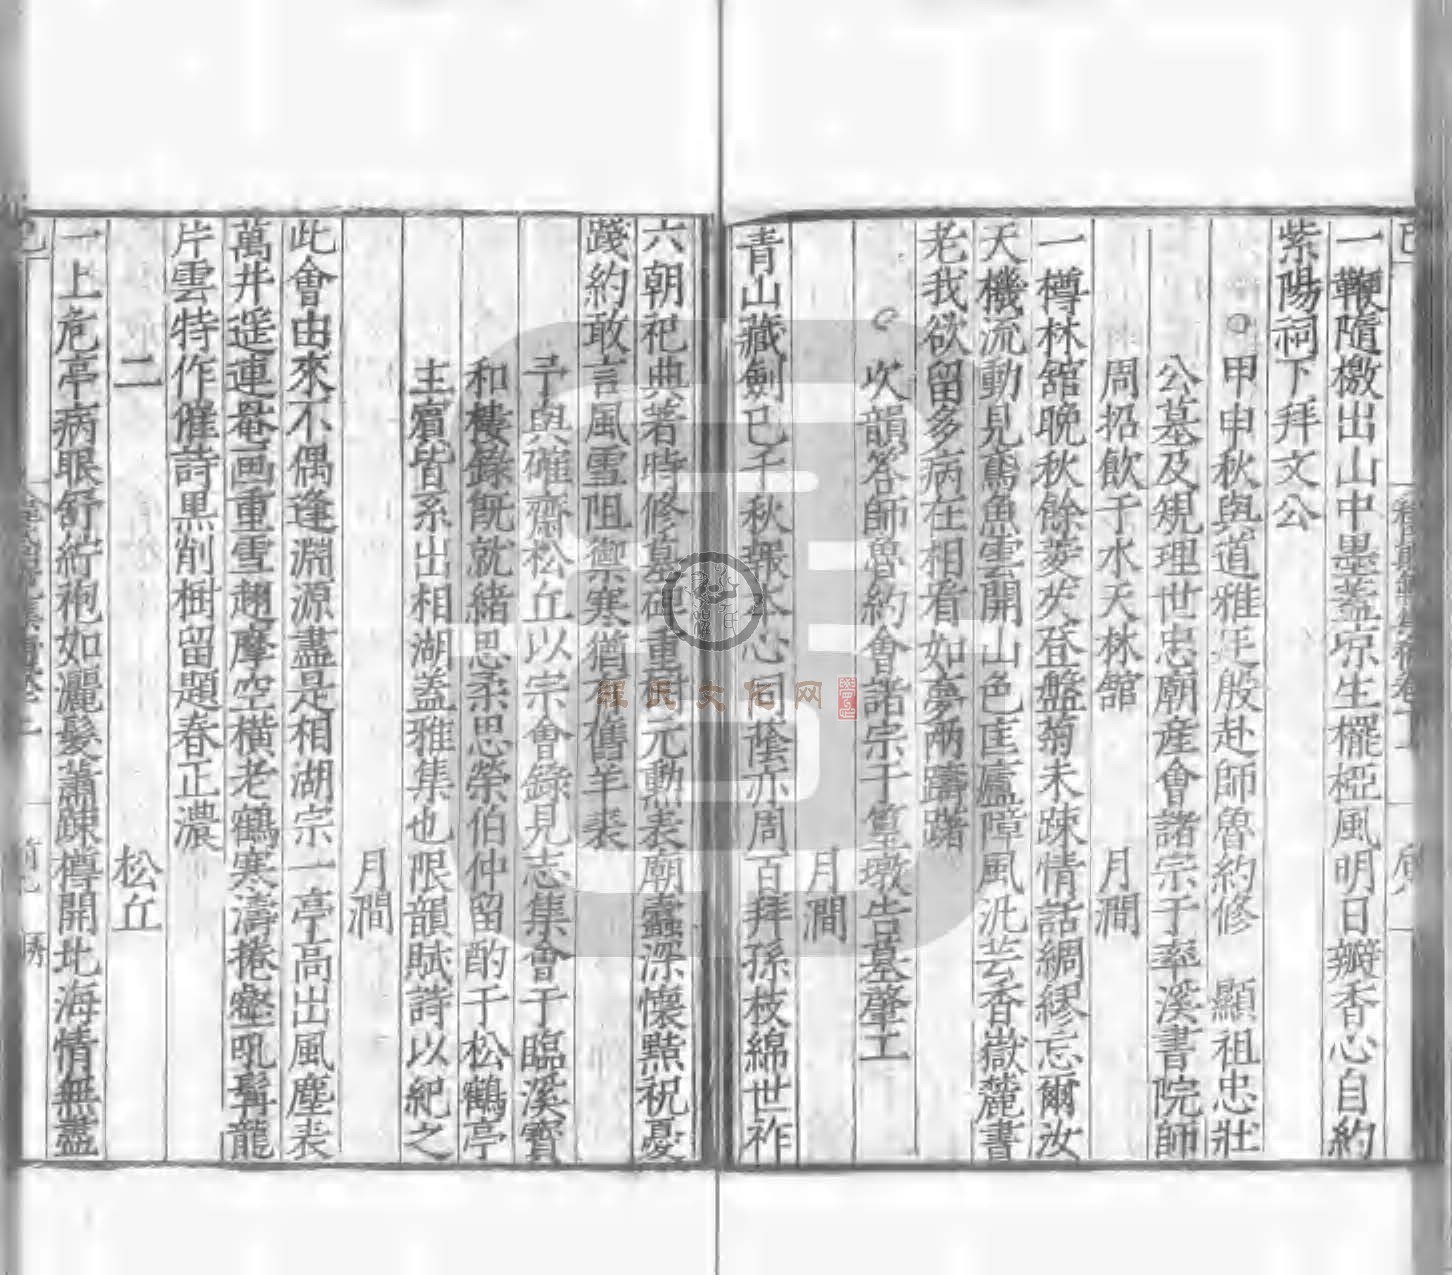 一鞭隨檄出山中墨蓋凉生擺椏風明日瓣香心自約
紫陽祠下拜文公
甲申秋與道雅廷殷赴師魯約修 顯祖忠壯
公墓及規理世忠廟產會諸宗于率溪書院師
周招飲于水天林館
月澗
一樽林舘晚秋餘菱芡登盤菊未踈情話綢繆忘爾汝
天機流動見鳶魚雲開山色匡廬障風汎芸香嶽麓書
老我欲留多病在相看如夢兩躊躇
次韻答師魯約會諸宗于篁墩告墓肇工
月澗
青山藏劍已千秋報本心同蔭亦周百拜孫枝綿世祚
六朝祀典著時修墓碑重樹元勳表廟蠹深懷㸃祝憂
踐約敢言風雪阻禦寒猶有舊羊裘
予與確齋松丘以宗會錄見志集會于臨溪賓
和樓錄旣就緒思柔思榮伯仲留酌于松鶴亭
主賓皆系出相湖蓋雅集也限韻賦詩以紀之
月澗
此會由來不偶逢淵源盡是相湖宗一亭高出風塵表
萬井遥連罨画重雪趐摩空橫老鶴寒濤捲壑吼髯龍
片雲特作催詩黒削樹留題春正濃
二
松丘
一上危亭病眼舒絎袍如灑髮蕭踈樽開北海情無盡